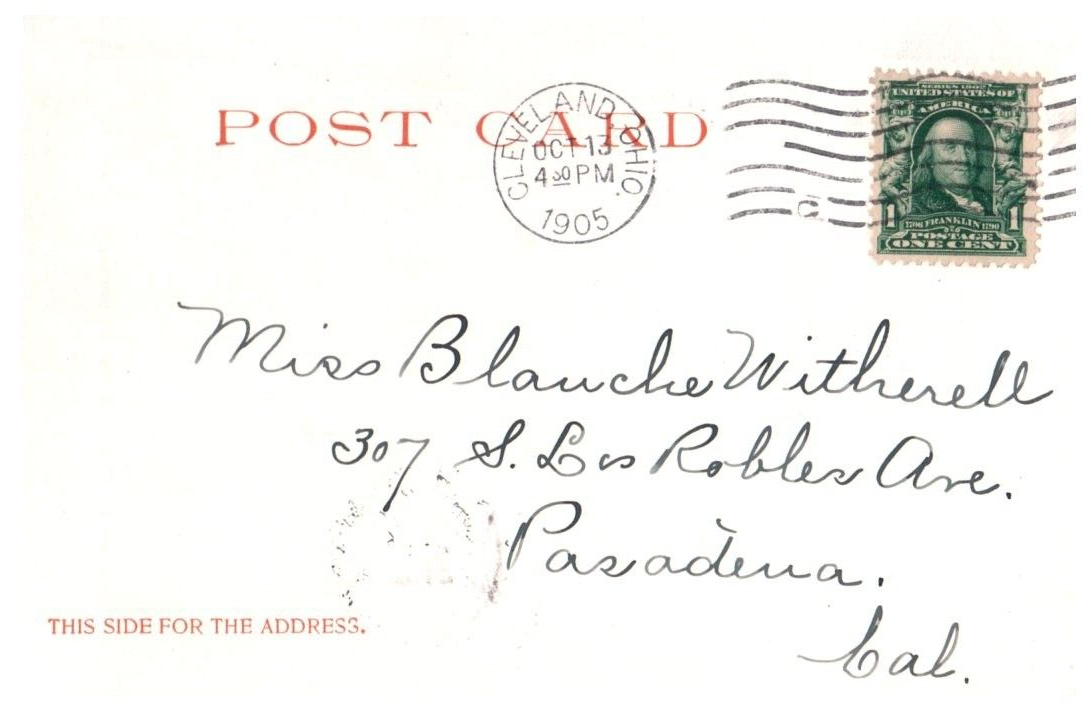 POST CARD
CLEVELAND, OHIO.
OCT 13
4 30 PM
1905
SERIES 1902
UNITED STATES OF
AMERICA
1 1
1706 FRANKLIN 1790
POSTAGE
ONE CENT
Miss Blanche Witherell
307 S. Los Robles Ave.
Pasadena.
Cal.
THIS SIDE FOR THE ADDRESS.